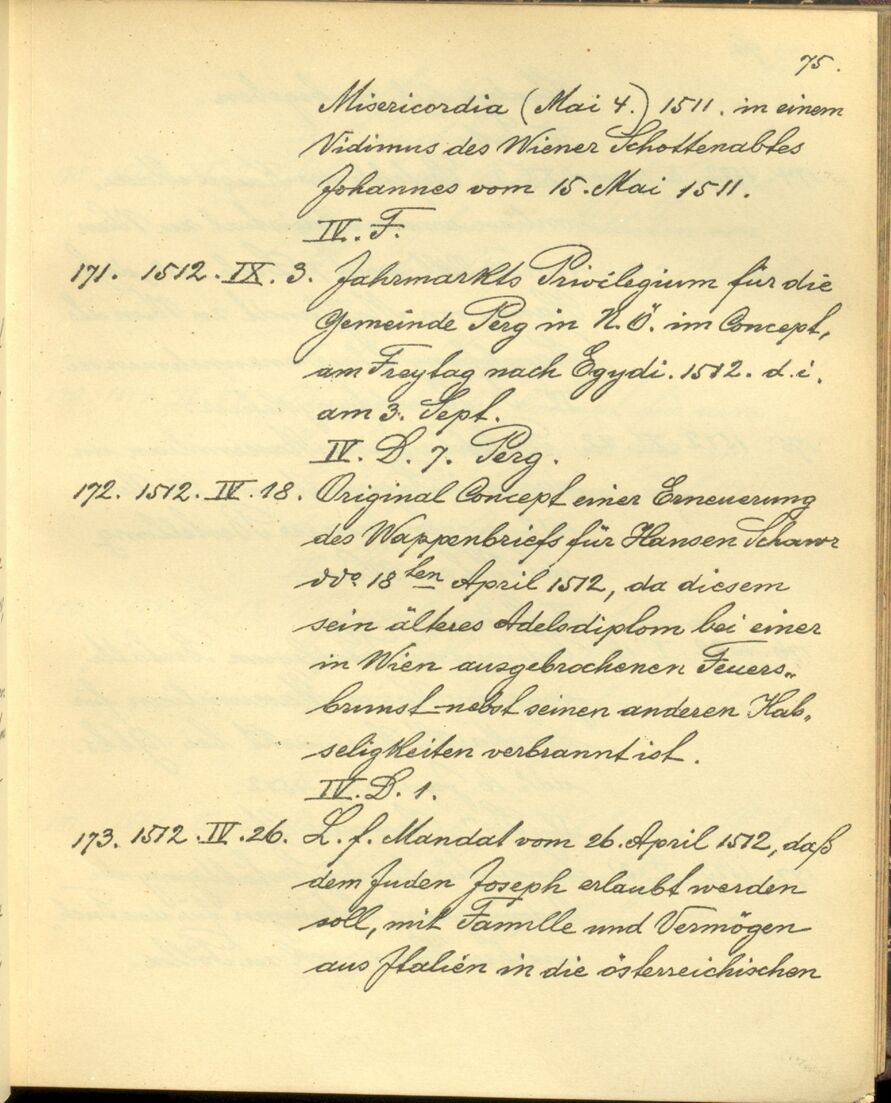 75.
Misericordia (Mai 4.) 1511. in einem
Vidimus des Wiener Schottenabtes
Johannes vom 15. Mai 1511.
IV. F.
171. 1512. IX. 3. Jahrmarkts Privilegium für die
Gemeinde Perg in N. Ö. im Concept,
am Freytag nach Egydi. 1512. d. i.
am 3. Sept.
IV. D. 7. Perg.
172. 1512. IV. 18. Original Concept einer Erneuerung
des Wappenbriefs für Hansen Schawr
ddo. 18ten April 1512, da diesem
sein älteres Adelsdiplom bei einer
in Wien ausgebrochenen Feuers„
brunst nebst seinen anderen Hab„
seligkeiten verbrannt ist.
IV. D. 1.
173. 1512. IV. 26. L. f. Mandat vom 26. April 1512, daß
dem Juden Joseph erlaubt werden
soll, mit Familie und Vermögen
aus Italien in die österreichischen